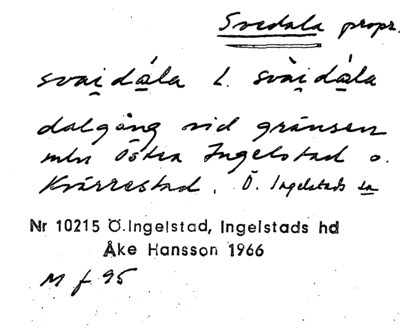 Svedala propr.
svai̯dála l. svài̯dála
dalgång vid gränsen
mln Östra Ingelstad o.
Kverrestad. Ö. Ingelstads sn
Nr 10215 Ö.Ingelstad, Ingelstads hd
Åke Hansson 1966
M f 95